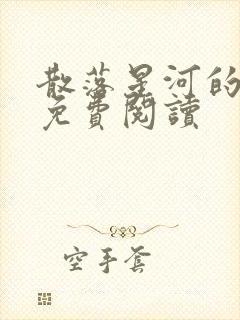 散落星河的
免費閱讀
空手套